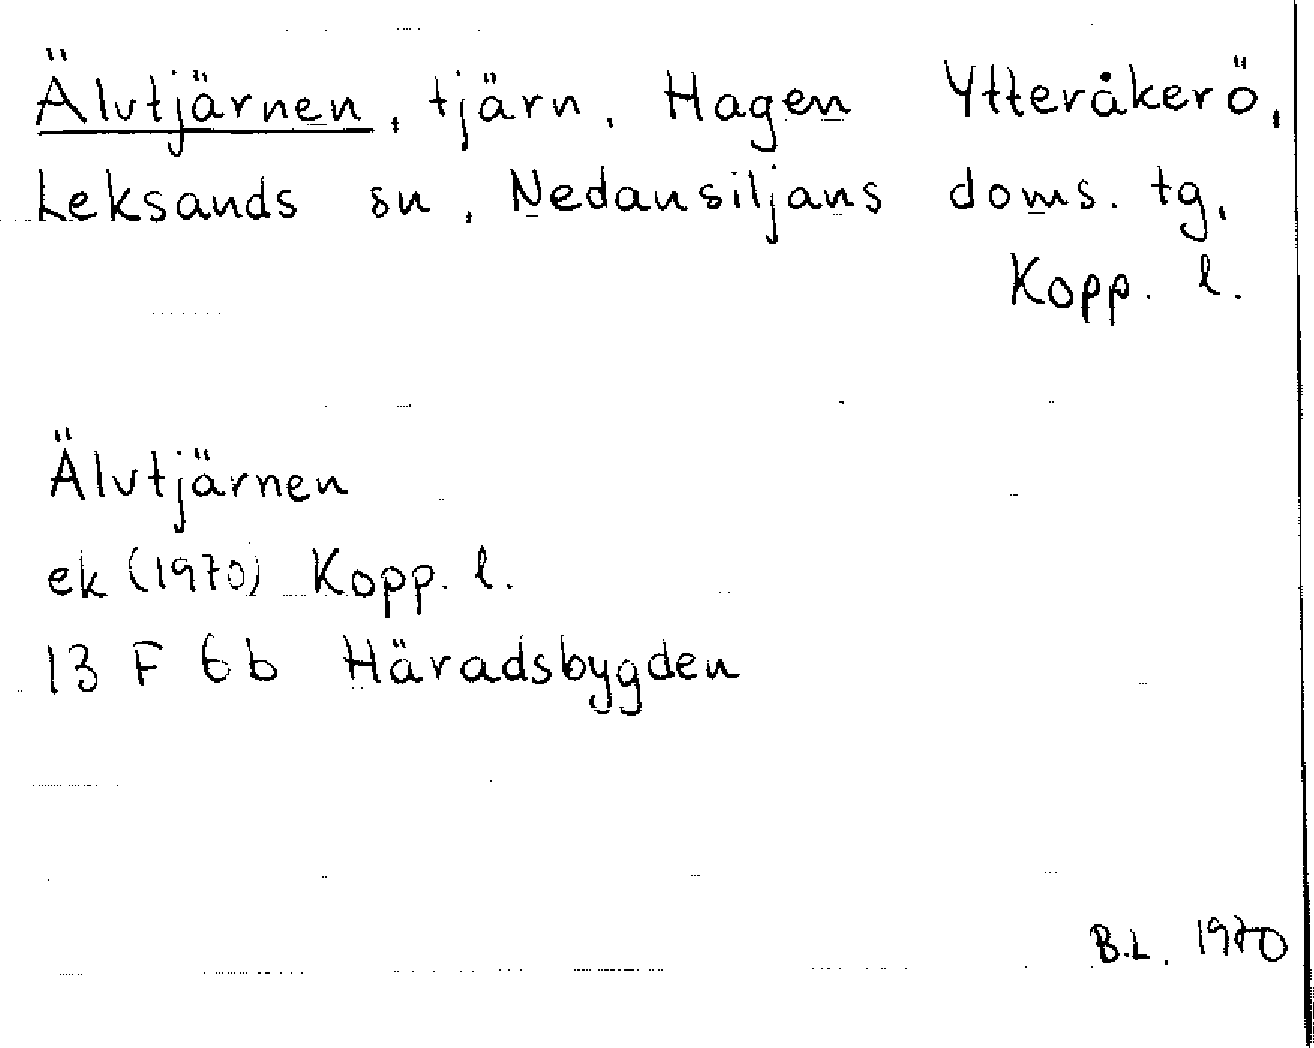 Älvtjärnen, tjärn, Hagen Ytteråkerö,
Leksands sn, Nedansiljans doms. tg,
Kopp. l.
Älvtjärnen
ek (1970) Kopp. l.
13 F 6b Häradsbygden
B.L. 1970